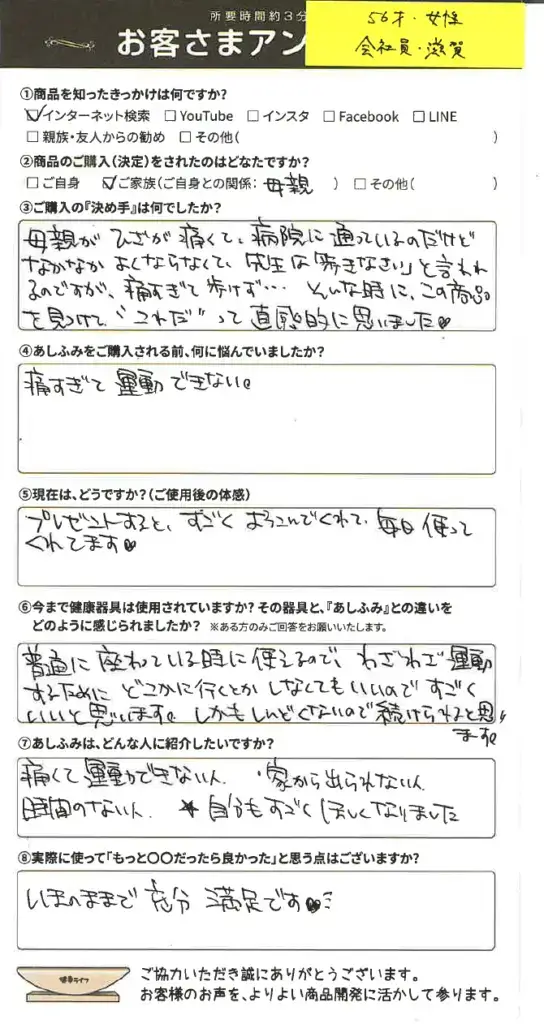 所要時間約3分
お客さまアン
56才・女性
会社員・滋賀
①商品を知ったきっかけは何ですか?
☑インターネット検索 □YouTube □インスタ □Facebook □LINE
□親族・友人からの勧め □その他( )
②商品のご購入(決定)をされたのはどなたですか?
□ご自身 ☑ご家族(ご自身との関係: 母親 ) □その他( )
③ご購入の『決め手』は何でしたか?
母親が ひざが痛くて、病院に通っているのだけど
なかなか よくならなくて、先生は「歩きなさい」と言われ
るのですが、痛すぎて歩けず… そんな時に、この商品
を見つけて "これだ" って 直感的に思いました♡
④あしふみをご購入される前、何に悩んでいましたか?
痛すぎて 運動できない。
⑤現在は、どうですか?(ご使用後の体感)
プレゼントすると、すごく よろこんでくれて、毎日使って
くれてます♡
⑥今まで健康器具は使用されていますか? その器具と、『あしふみ』との違いを
どのように感じられましたか? ※ある方のみご回答をお願いいたします。
普通に 座わっている時に使えるので、わざわざ 運動
するために どこかに行くとか しなくてもいいので すごく
いいと思います。しかもしんどくないので続けられると思い
ます。
⑦あしふみは、どんな人に紹介したいですか?
痛くて運動できない人、・家から出られない人
時間のない人、 ★自分もすごくほしくなりました
⑧実際に使って「もっと〇〇だったら良かった」と思う点はございますか?
いまのままで 充分 満足です♡
健幸ライフ
ご協力いただき誠にありがとうございます。
お客様のお声を、よりよい商品開発に活かして参ります。